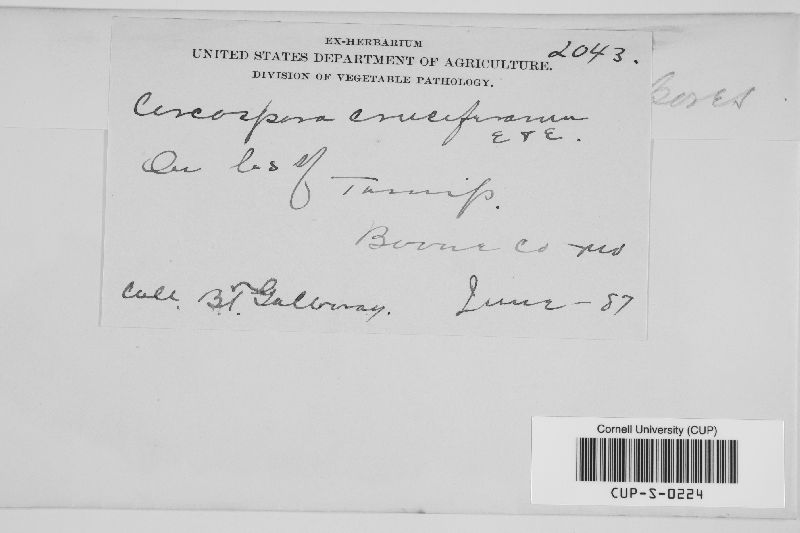 EX-HERBARIUM
UNITED STATES DEPARTMENT OF AGRICULTURE. 2043.
DIVISION OF VEGETABLE PATHOLOGY.
Cercospora cruciferarum
E & E.
On lvs of Turnip.
Boone Co Mo
Coll. B.T. Galloway. June - 87
Cornell University (CUP)
CUP-S-0224